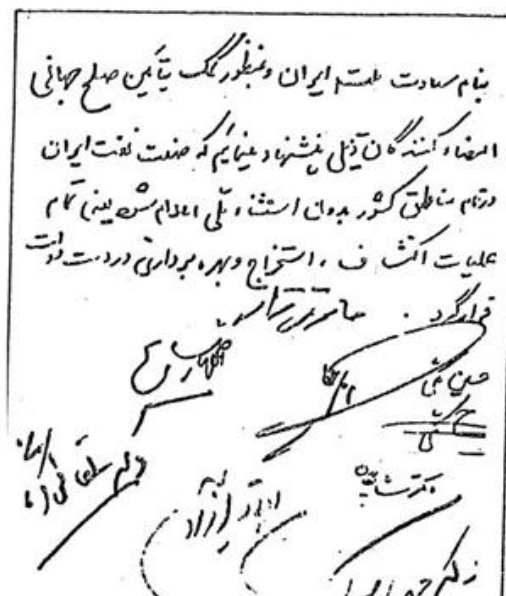 بنام سعادت ملت ایران و بمنظور کمک بتأمین صلح جهانی
امضاء کنندگان ذیل پیشنهاد مینمائیم که صنعت نفت ایران
در تمام مناطق کشور بدون استثناء ملی اعلام شود یعنی تمام
عملیات اکتشاف، استخراج و بهره برداری در دست دولت
قرار گیرد.
حائری زاده
اللهیار صالح
حسین مکی
دکتر شایگان
آزاد